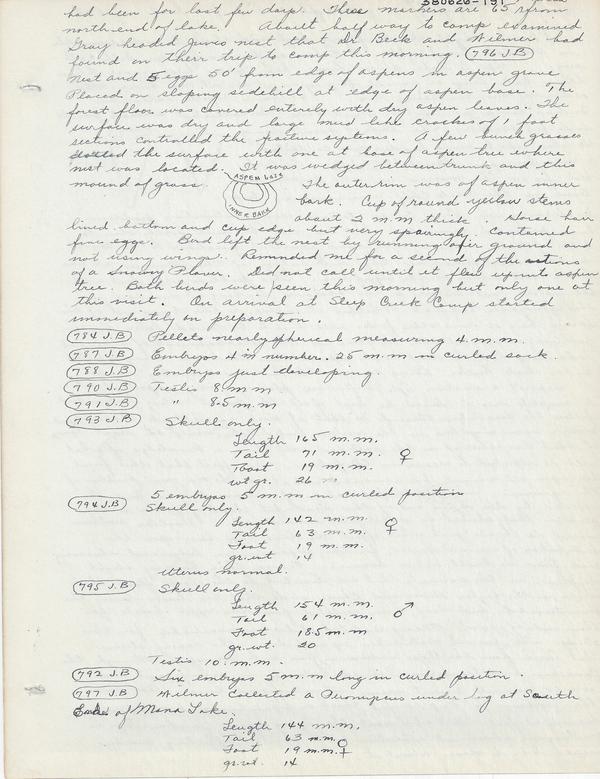 380626-191
had been for last few days. These markers are 65' from
north end of lake. About half way to camp examined
Gray headed Junco nest that Dr Beck and Wilmer had
found on therr trip to camp this morning. (796 J.B)
Nest and 5 eggs 50' from edge of aspens in aspen grove
Placed on sloping sidehill at edge of aspen base. The
forest floor was covered enterely with dry aspen leaves. The
surface was dry and large mud like crackes of 1 foot
sections controlled the pasture systems. A few bunch grasses
dotted the surface with one at base of aspen tree where
nest was located. It was wedged between trunk and this
mound of grass.
ASPEN BASE
INNER BARK
The outer rim was of aspen inner
bark. Cup of round yellow stems
about 2 m.m thick. Horse hair
lined bottom and cup edge but very sparingly. Contained
five eggs. Bird left the nest by running over ground and
not using wings. Reminded me for a second of the actions
of a Snowy Plover. Did not call until it flew up into aspen
tree. Both birds were seen this morning but only one at
this visit. On arrival at Sleep Creek Camp started
immediately on preparation.
(784 J.B) Pellets nearly spherical measuring 4 m.m.
(787 J.B) Embryos 4 in number. 25 m.m in curled sack.
(788 J.B) Embryos just developing.
(790 J.B) Testis 8 m m
(791 J.B) " 8.5 m.m
(793 J.B) Skull only.
Length 165 m.m.
Tail 71 m.m. ♀
Foot 19 m.m.
wt gr. 26
5 embryos 5 m.m in curled position
(794 J.B) Skull only.
Length 142 m.m. ♀
Tail 63 m.m.
Foot 19 m.m.
gr. wt 14
Uterus normal.
(795 J.B) Skull only.
Length 154 m.m. ♂
Tail 61 m.m.
Foot 18.5 m.m
gr. wt. 20
Testis 10. m.m.
(792 J.B) Six embryos 5 m.m long in curled position.
(797 J.B) Wilmer Collected a Peromyscus under log at South
End of Mono Lake.
Length 144 m.m.
Tail 63 m.m. ♀
Foot 19 m.m.
gr. wt. 14